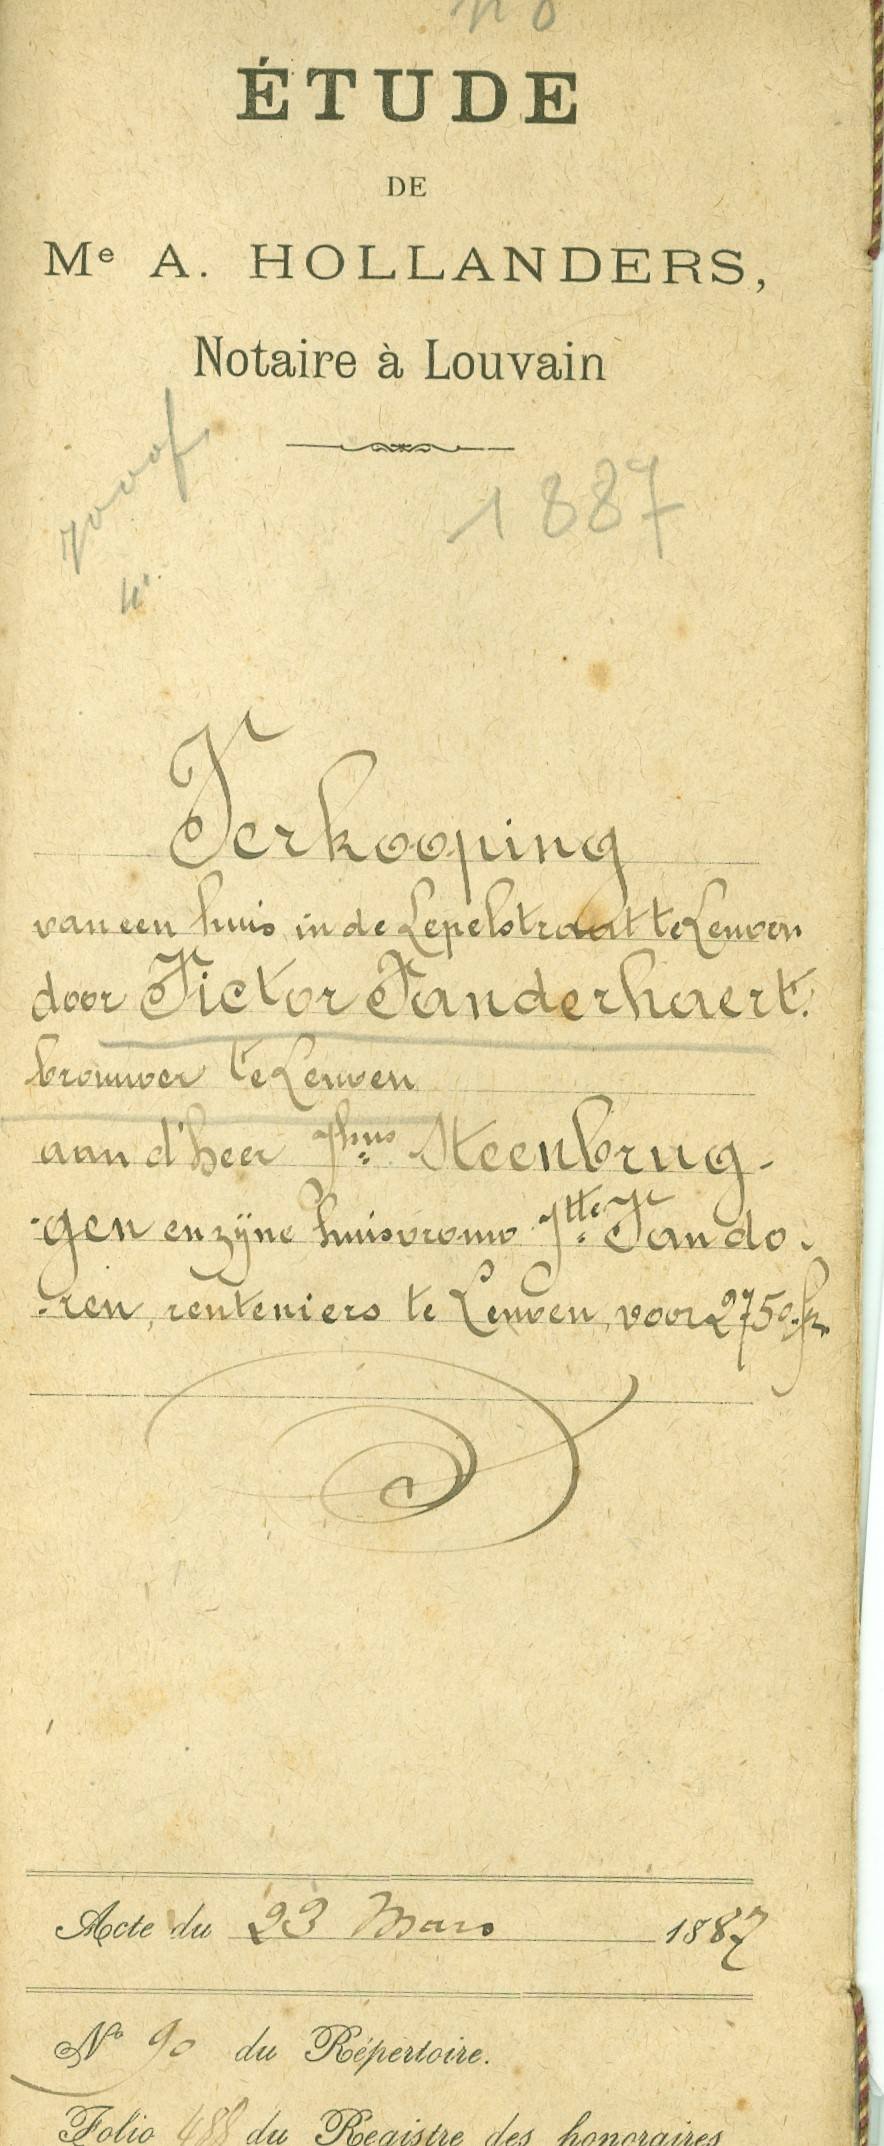 ÉTUDE
DE
Me A. HOLLANDERS,
Notaire à Louvain
1887
Verkooping
van een huis in de Lepelstraat te Leuven
door Victor Vanderhaert.
brouwer te Leuven
aan d'heer Jhnus Steenbrug-
-gen en zÿne huisvrouw Jtte Vando-
-ren, renteniers te Leuven, voor 2750 fr
Acte du 23 Mars 1887
No 90 du Répertoire.
Folio 488 du Registre des honoraires